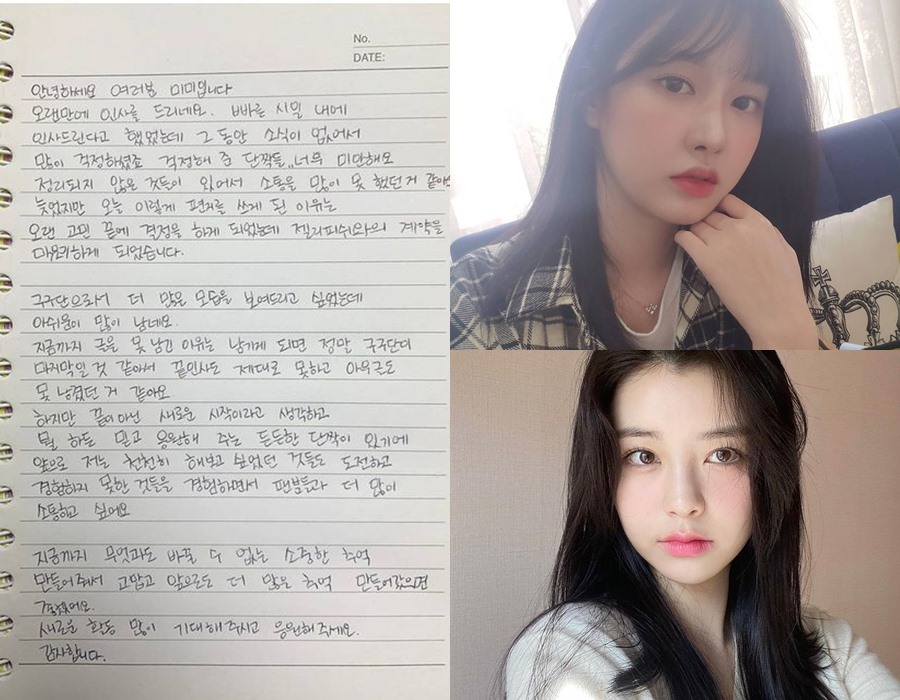 No.
DATE:
안녕하세요 여러분 미미입니다
오랜만에 인사를 드리네요. 빠른 시일 내에
인사드린다고 했었는데 그 동안 소식이 없어서
많이 걱정하셨죠 걱정해 준 단짝들,,너무 미안해요
정리되지 않은 것들이 있어서 소통을 많이 못 했던 거 같아요
늦었지만 오늘 이렇게 편지를 쓰게 된 이유는
오랜 고민 끝에 결정을 하게 되었는데 젤리피쉬와의 계약을
마무리하게 되었습니다.
구구단으로서 더 많은 모습을 보여드리고 싶었는데
아쉬움이 많이 남네요.
지금까지 글을 못 남긴 이유는 남기게 되면 정말 구구단의
마지막일 것 같아서 끝인사도 제대로 못하고 아무글도
못 남겼던 거 같아요
하지만 끝이 아닌 새로운 시작이라고 생각하고
뭘 하든 믿고 응원해 주는 든든한 단짝이 있기에
앞으로 저는 천천히 해보고 싶었던 것들도 도전하고
경험하지 못한 것들을 경험하면서 팬분들과 더 많이
소통하고 싶어요
지금까지 무엇과도 바꿀 수 없는 소중한 추억
만들어주셔서 고맙고 앞으로도 더 많은 추억 만들어갔으면
좋겠어요.
새로운 활동 많이 기대해주시고 응원해주세요.
감사합니다.